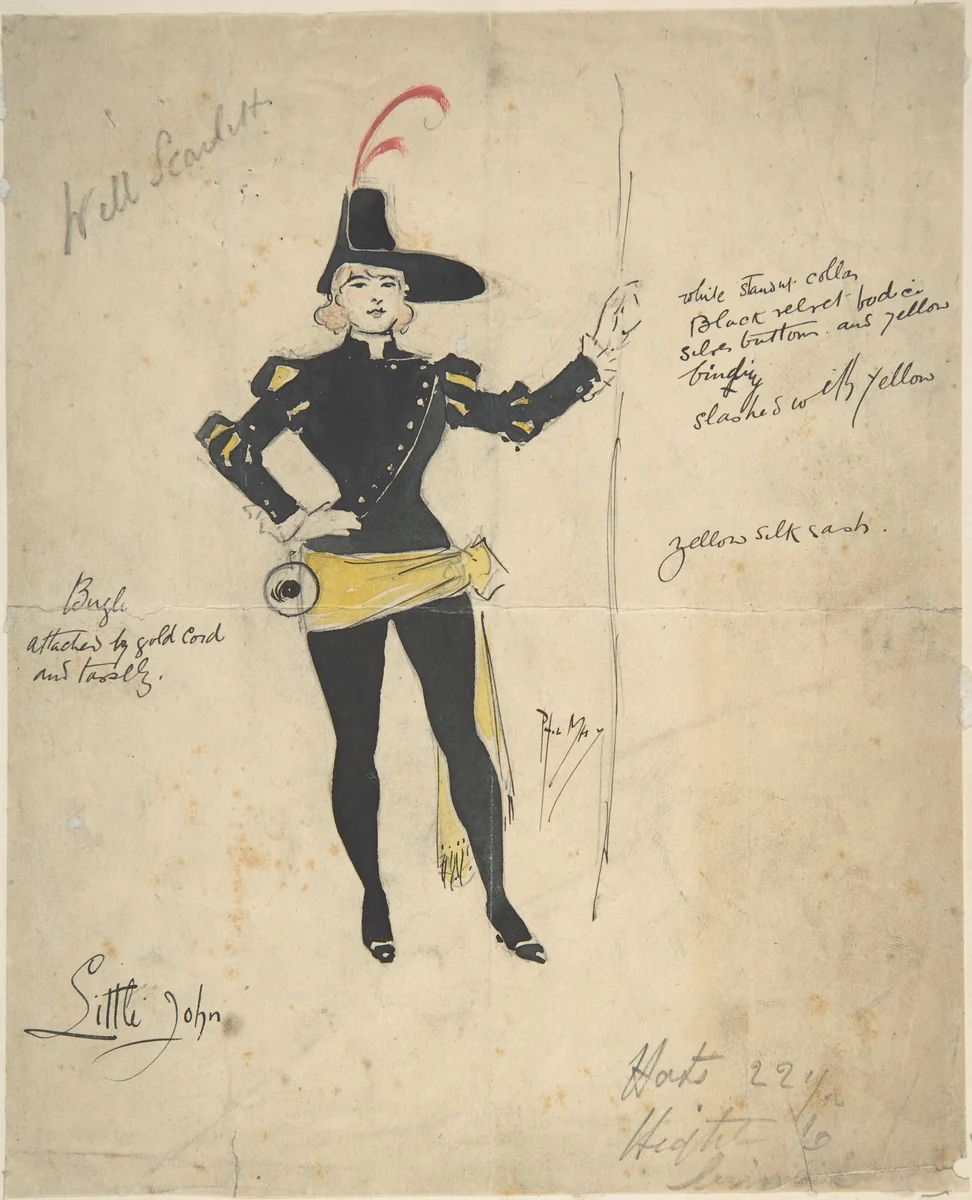 Will Scarlett.
white stand up collar
Black velvet bodice
silver buttons and yellow
binding
slashed with yellow
yellow silk sash.
Bugle
attached by gold cord
and tassels.
Phil May
Little John
Hats 22 1/2
Height 6